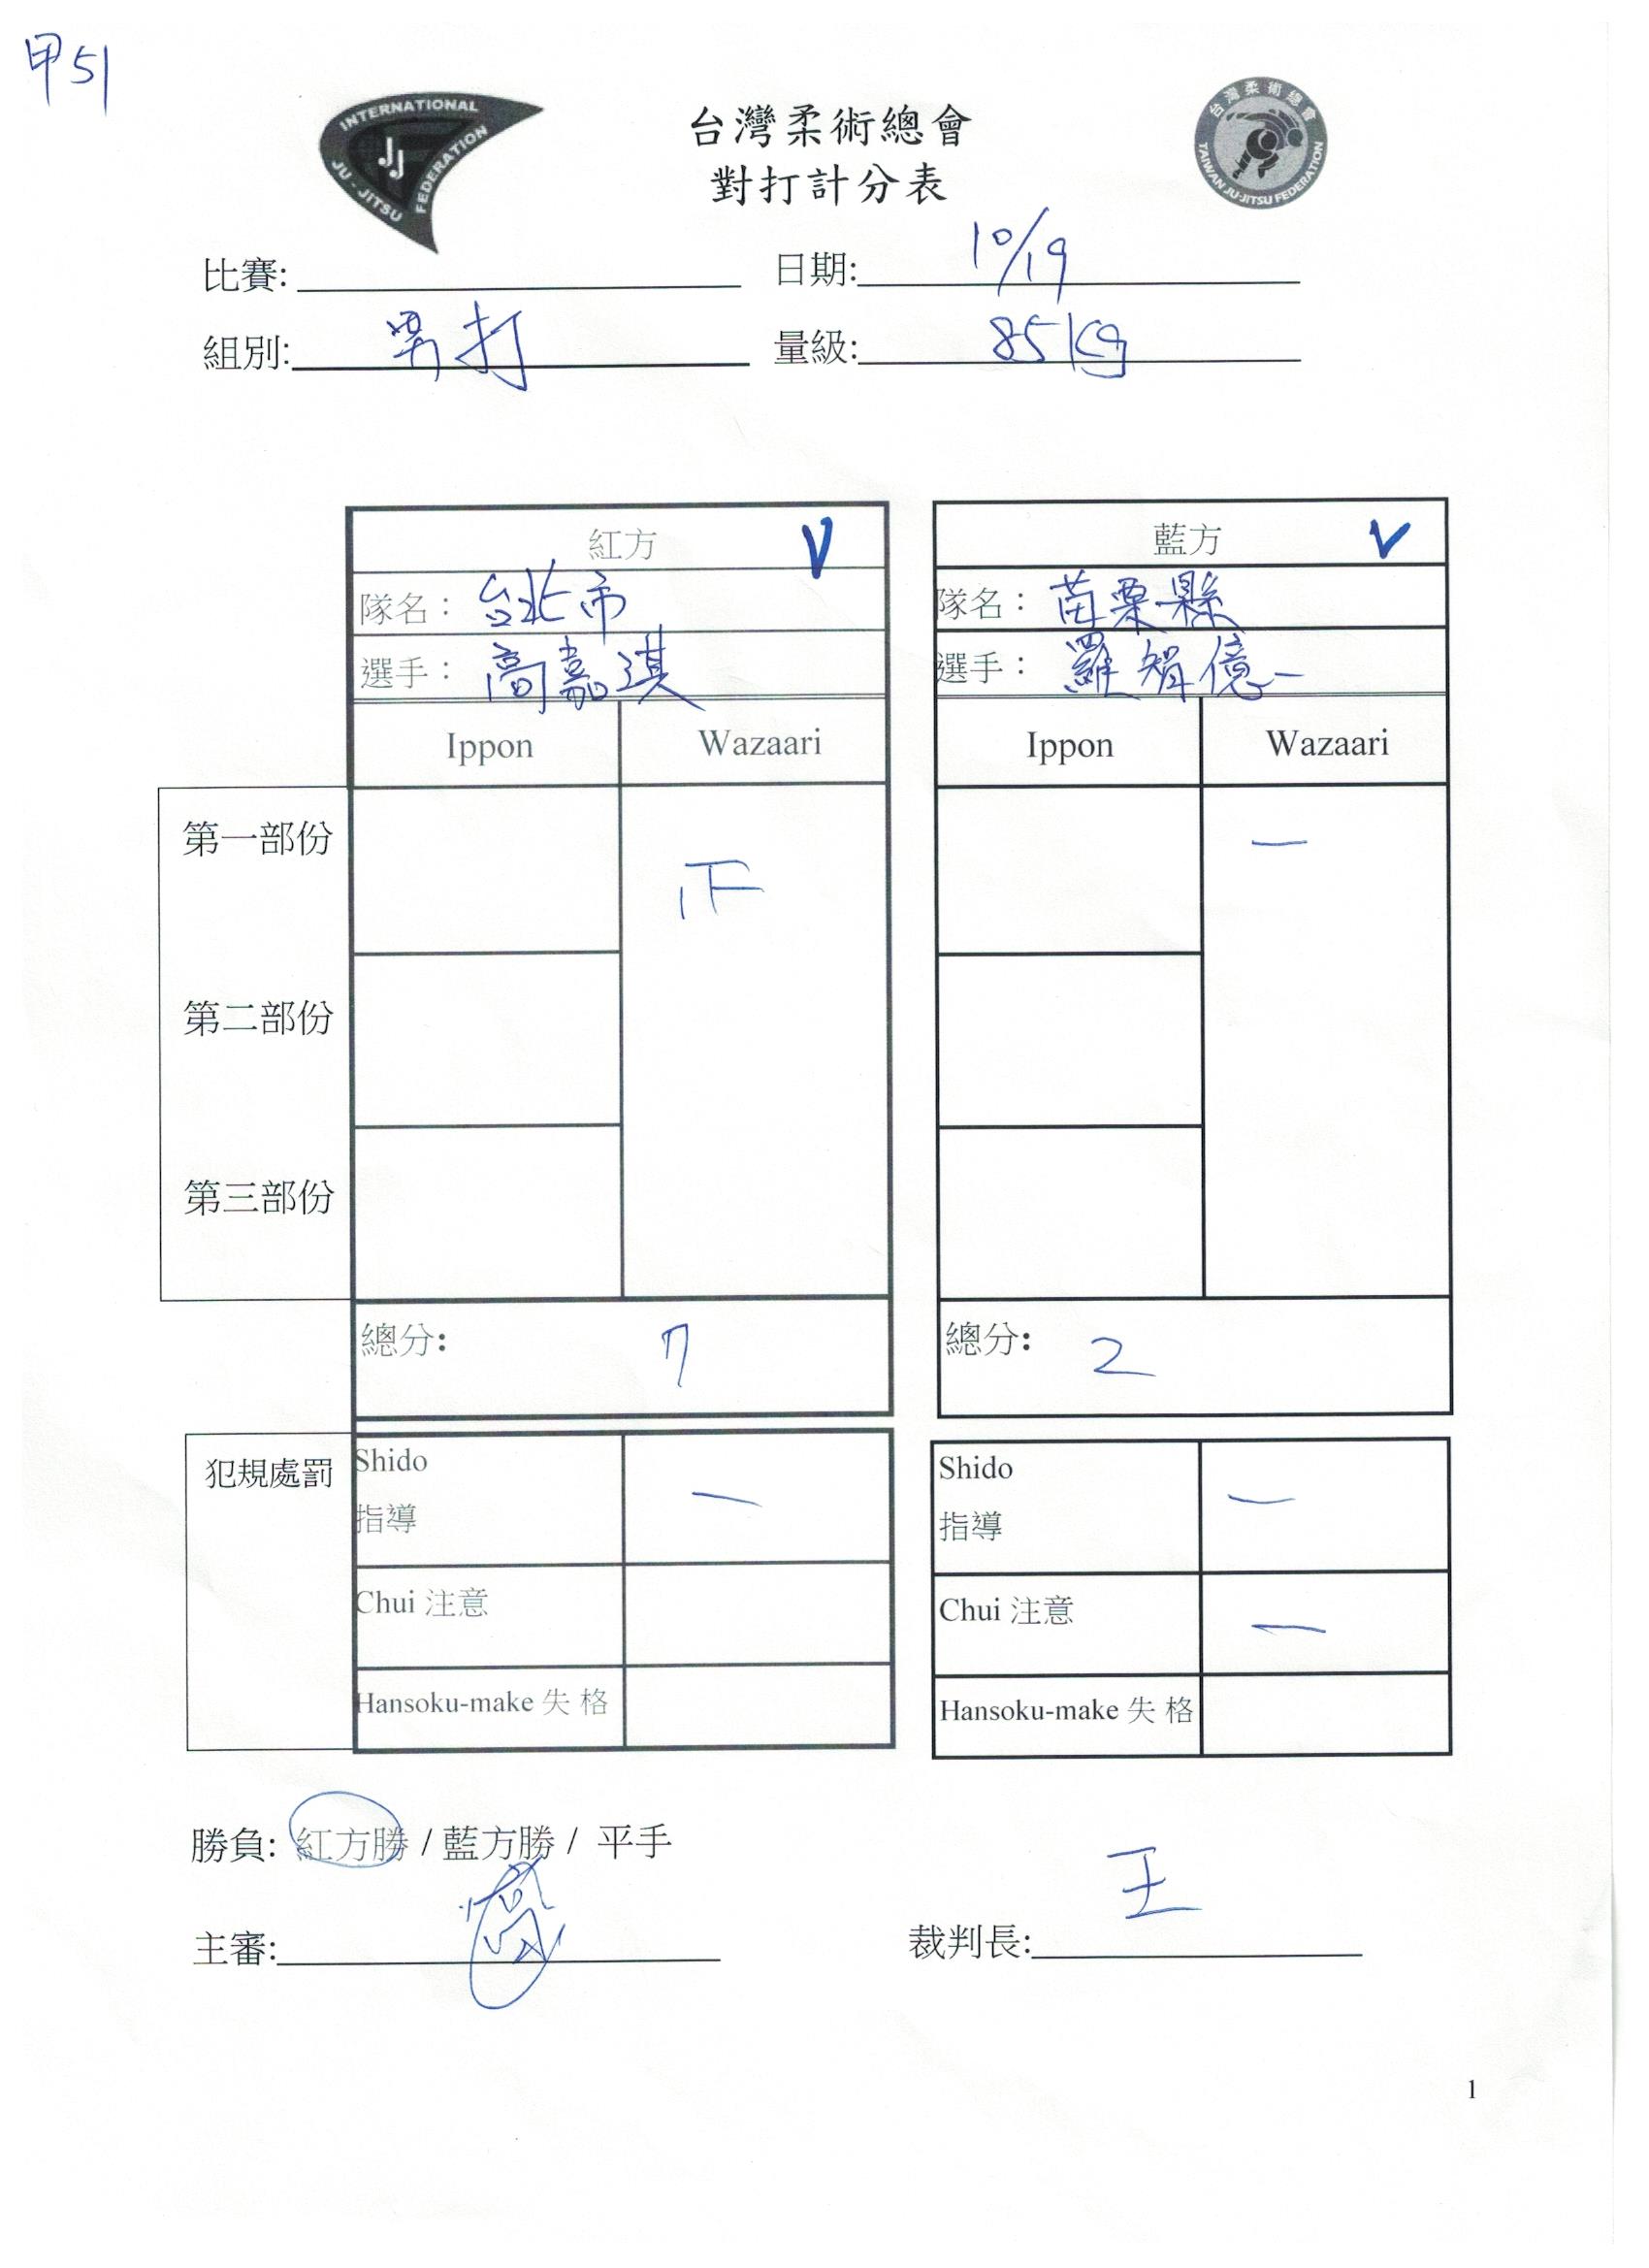 甲51
INTERNATIONAL
JU-JITSU FEDERATION
JJ
台灣柔術總會
TAIWAN JU-JITSU FEDERATION
台灣柔術總會
對打計分表
比賽: 日期: 10/19
組別: 男打 量級: 85kg
紅方 V 藍方 V
隊名: 台北市 隊名: 苗栗縣
選手: 高嘉淇 選手: 羅智億
Ippon Wazaari Ippon Wazaari
第一部份 下 一
第二部份
第三部份
總分: 7 總分: 2
犯規處罰 Shido 一 Shido 一
指導 指導
Chui 注意 Chui 注意 一
Hansoku-make 失 格 Hansoku-make 失 格
勝負: 紅方勝 / 藍方勝 / 平手
主審: 裁判長: 王
1